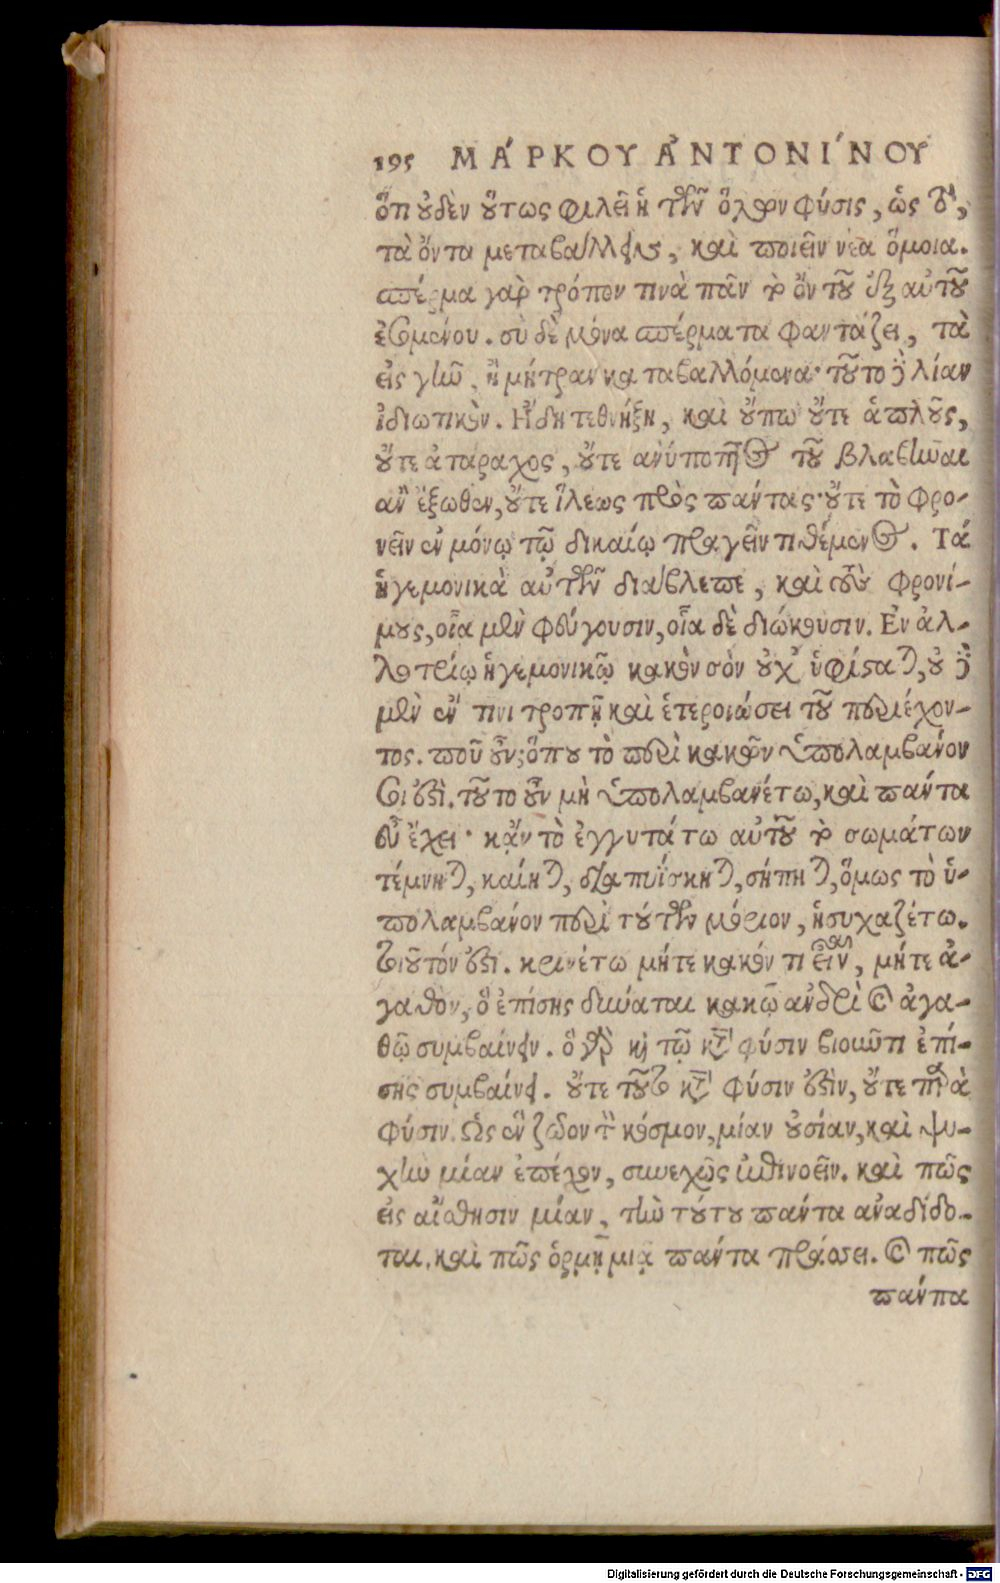 195 ΜΆΡΚΟΥ ἈΝΤΟΝΊΝΟΥ
ὅτι οὐδὲν οὕτως φιλεῖ ἡ τῶν ὅλων φύσις, ὡς τὸ,
τὰ ὄντα μεταβάλλειν, καὶ ποιεῖν νέα ὅμοια.
σπέρμα γὰρ τρόπον τινὰ πᾶν τὸ ὂν τοῦ ἐξ αὐτοῦ
ἐσομένου. σὺ δὲ μόνα σπέρματα φαντάζει, τὰ
εἰς γῆν, ἢ μήτραν καταβαλλόμενα· τοῦτο δὲ λίαν
ἰδιωτικόν. Ἤδη τεθνήξῃ, καὶ οὔπω οὔτε ἁπλοῦς,
οὔτε ἀτάραχος, οὔτε ἀνύποπτος τοῦ βλαβῆναι
ἂν ἔξωθεν, οὔτε ἵλεως πρὸς πάντας· οὔτε τὸ φρο-
νεῖν ἐν μόνῳ τῷ δικαίῳ πραγεῖν τιθέμενος. Τά
ἡγεμονικὰ αὐτῶν διάβλεπε, καὶ τοὺς φρονί-
μους, οἷα μὲν φεύγουσιν, οἷα δὲ διώκουσιν. Ἐν ἀλ-
λοτρίῳ ἡγεμονικῷ κακὸν σὸν οὐχ ὑφίσταται, οὐ δὲ
μὲν ἔν τινι τροπῇ καὶ ἑτεροιώσει τοῦ περιέχον-
τος. ποῦ οὖν; ὅπου τὸ περὶ κακῶν ὑπολαμβάνον
σοι ἐστί. τοῦτο οὖν μὴ ὑπολαμβανέτω, καὶ πάντα
εὖ ἔχει· κᾂν τὸ ἐγγυτάτω αὐτοῦ τὸ σωμάτων
τέμνηται, καίηται, διαπυΐσκηται, σήπηται, ὅμως τὸ ὑ-
πολαμβάνον περὶ τούτων μόριον, ἡσυχαζέτω.
τουτόν ἐστι. κρινέτω μήτε κακόν τι εἶναι, μήτε ἀ-
γαθὸν, ὃ ἐπίσης δύναται κακῷ ἀνδρὶ καὶ ἀγα-
θῷ συμβαίνειν. ὃ γὰρ καὶ τῷ κατὰ φύσιν βιοῦντι ἐπί-
σης συμβαίνει. οὔτε τοῦτο κατὰ φύσιν ἐστὶν, οὔτε παρὰ
φύσιν. Ὡς ἓν ζῶον τὸν κόσμον, μίαν οὐσίαν, καὶ ψυ-
χὴν μίαν ἐπέχον, συνεχῶς ἐπινοεῖν. καὶ πῶς
εἰς αἴσθησιν μίαν, τὴν τούτου πάντα ἀναδίδο-
ται. καὶ πῶς ὁρμῇ μιᾷ πάντα πράσσει. καὶ πῶς
πάντα